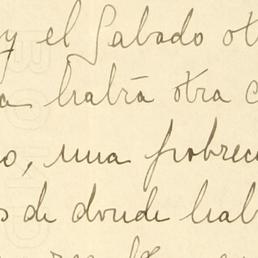 y el Sabado ot
a habrá otra c
o, una pobrec
s de donde hab